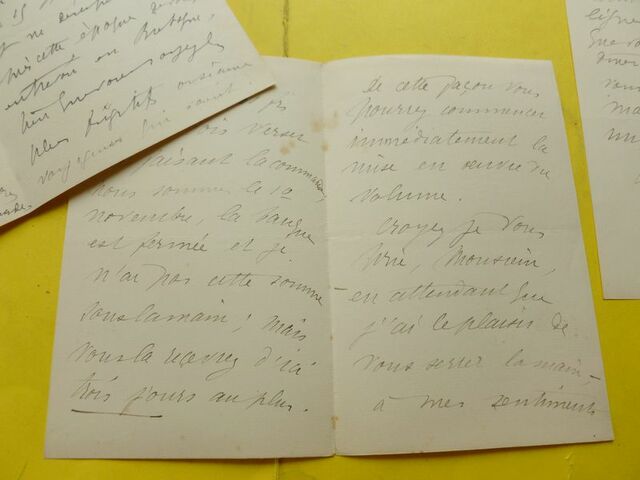 ne
cette époque
entreront en Bretagne,
que vous
plus
voyageuses
verser
faisant la commande,
nous sommes le 1er
novembre, la banque
est fermée et je
n'ai pas cette somme
sous la main; mais
vous la recevrez d'ici
trois jours au plus.
de cette façon vous
pourrez commencer
immédiatement la
mise en œuvre du
volume.
Croyez je vous
prie, Monsieur,
en attendant que
j'ai le plaisir de
vous serrer la main,
à mes sentiments
lignes
que